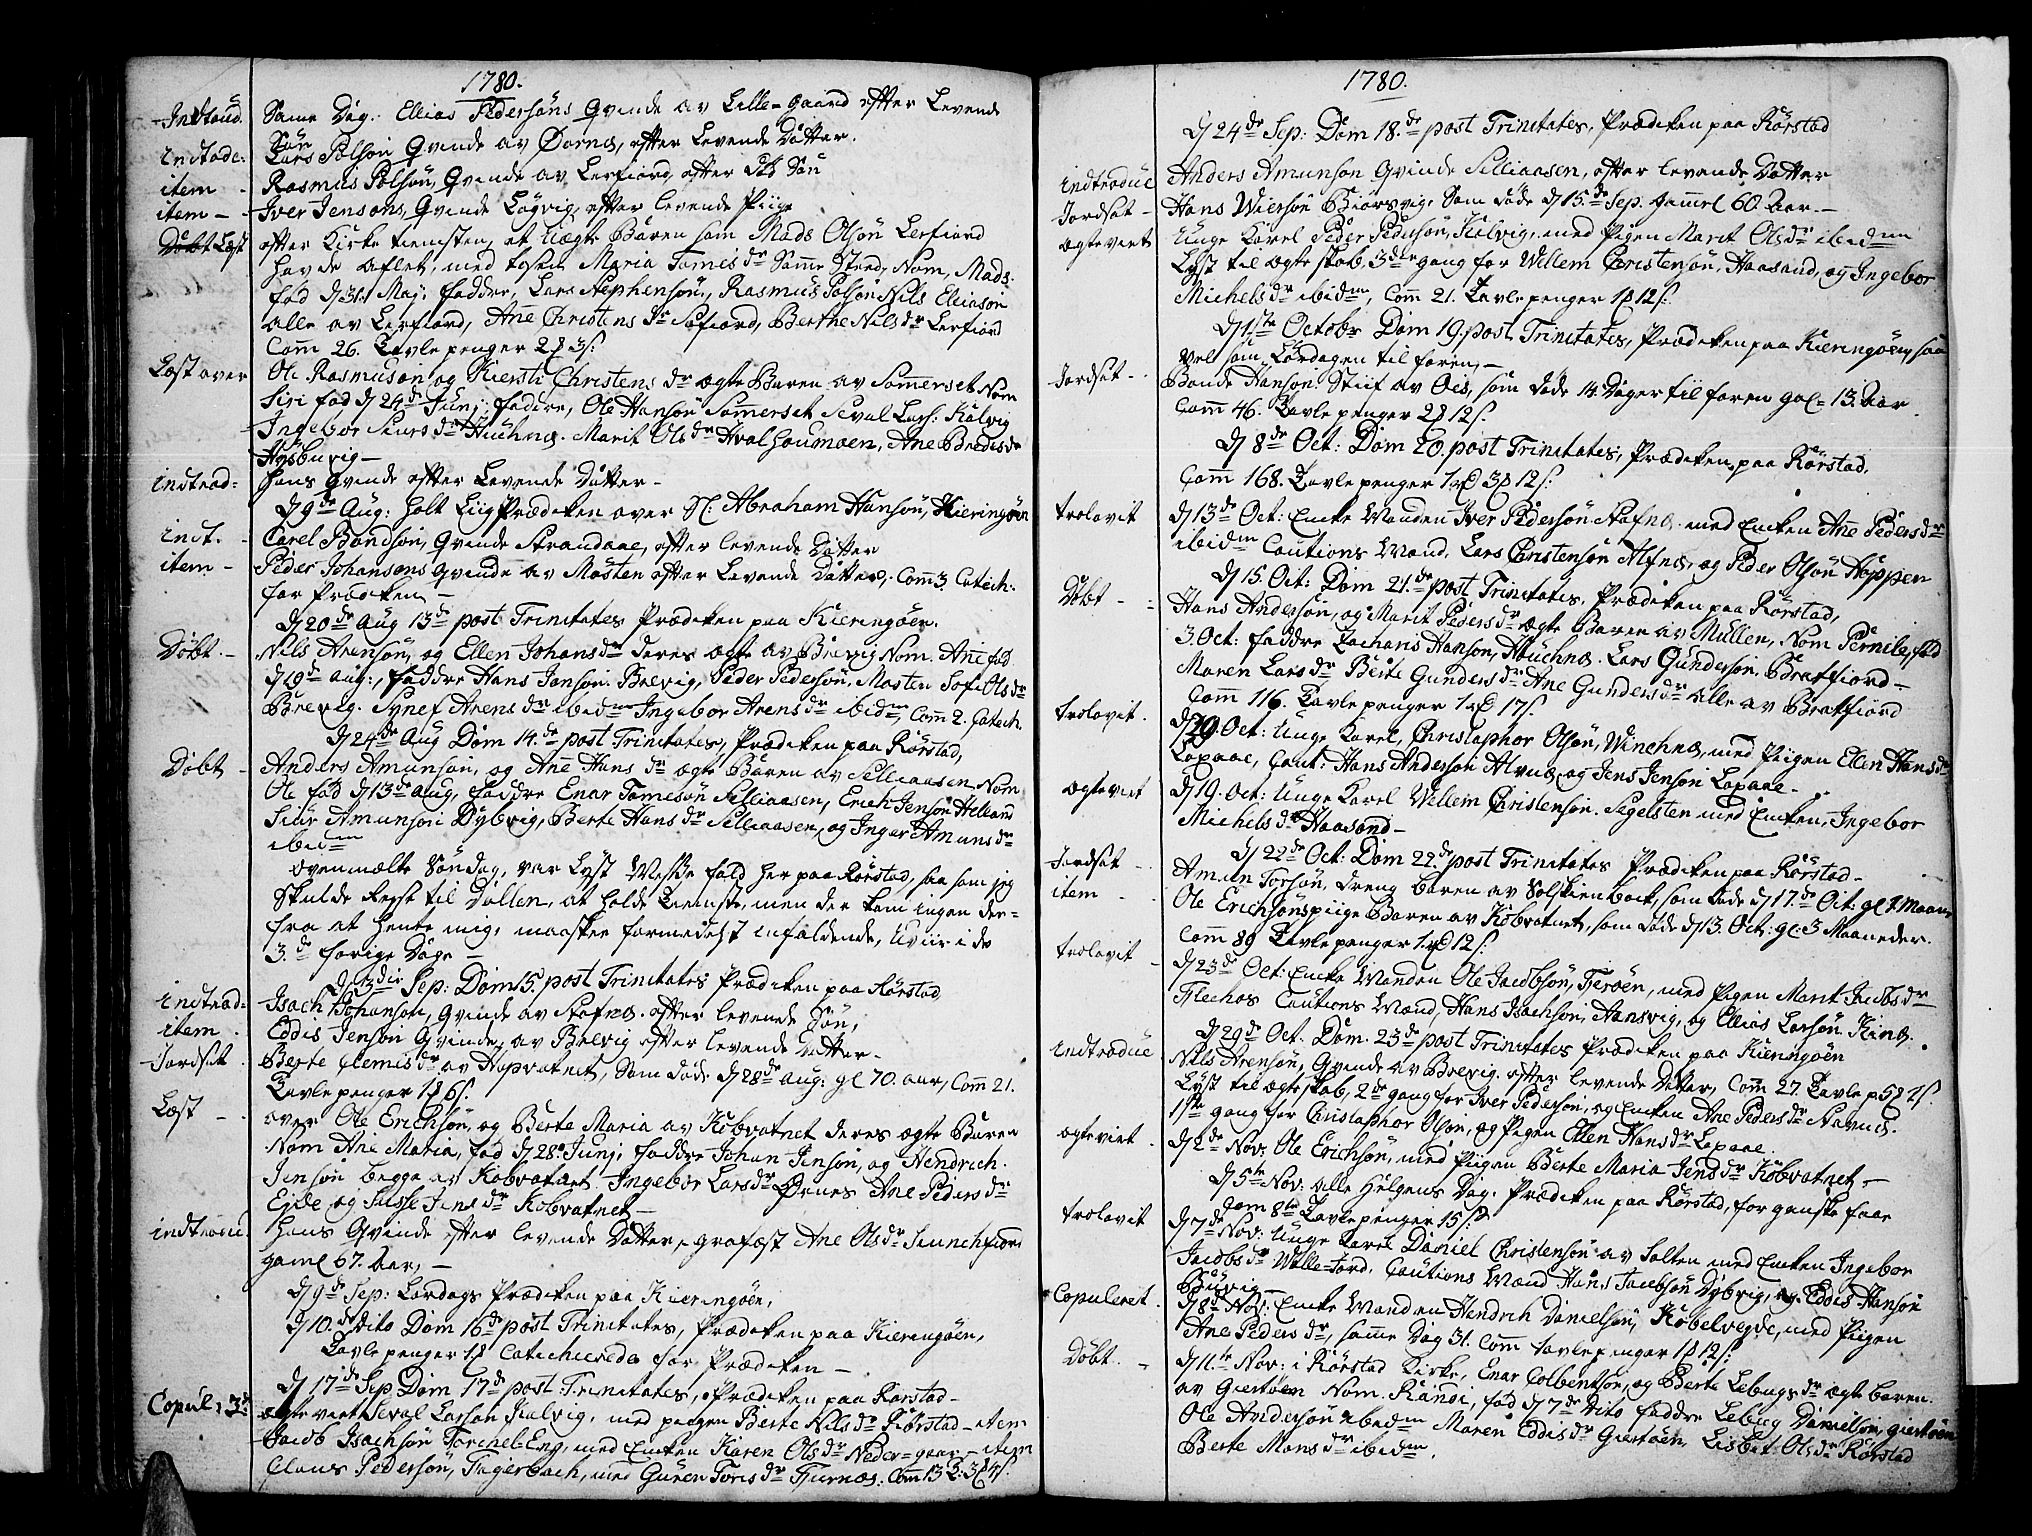 1780.
Introd. Same Dag: Ellias Pedersøns Qvinde av Lille-gaard efter Levende
Søn
Indtode: Lars Polsøn Qvinde av Ørnes, efter Levende Datter.
item - Rasmus Polsøn, Qvinde av Lerfiord, efter død Søn
item - Iver Jensøns, Qvinde Løgvig, efter levende Piige
Døbt Læst efter Kirke tienisten, et Uægte Baren som Mads Olsøn Lerfiord
havde aflet, med tøsen Maria Tomisdr Samme Sted, Nom, Mads.
fød d 31. Maj, faddre, Lars Stephensøn, Rasmus Polsøn Nils Eliasøn
alle av Lerfiord, Ane Christensdr Søfiord, Berthe Nilsdr Lerfiord
Com 26. Tavle penger 2 3 s.
Læst over Ole Rasmusøn og Kiersti Christens dr ægte Baren av Sommerset Nom
Siri fød d 24de Junj: faddre, Ole Hansøn Sommerset Seval Lars: Kalvig
Ingebor Siurs dr Hiuhnes. Marit Ols dr Hvalhoumoen, Ane Bredisdr
Høsburvig -
introd: hans Qvinde efter Levende Datter -
d 9de Aug: holt Liig Prædiken over Sl: Abraham Hansøn, Kieringøen
indt. - Carel Bandsøn, Qvinde Strandaae, efter levende Datter
item - Peder Johansøns Qvinde av Møsten efter Levende Datter, Com 3. Catech:
for Prædiken -
d 20de Aug 13de post Trinitates Prædiken paa Kieringøen.
Døbt - Nils Arensøn, og Ellen Johansdr deres ægte av Brevig Nom. Ane fød
d 19de Aug:, faddre Hans Jonsøn Brevig, Peder Pedersøn, Mosten Sofi Olsdr
Brevig. Synef Arens dr ibidm Ingebor Arens dr ibidm, Com 2. Catech.
d 24de Aug Dom 14.de post Trinitates, Prædiken paa Rørstad,
Døbt - Anders Amunsøn, og Ane Hans dr ægte Baren av Selliaasen Nom
Ole fød d 13de Aug, faddre Enar Tomesøn Selliaasen, Erich Jensøn Helland
Siur Amunsøn Dybvig, Berte Hans dr Selliaasen, og Inger Amunsdr
ibidm
ovenmælte Søndag, var Lyst Messe fald her paa Rørstad, saa som jeg
skulde Reyst til Følden, at holde tieniste, men der kom ingen der-
fra at hente mig, maaskee formedelst infaldende, Uviir i de
3.de forige Dage -
d 3die Sep: Dom 15. post Trinitates Prædiken paa Rørstad
introd: Isach Johansøn, Qvinde av Stafnes efter levende Søn,
item. Eddis Jensøn Qvinde, av Brevig efter levende Datter -
Jordsat. Berte Clemisdr av Hopvatnet, som døde d 28de Aug: gl 70. aar, Com 21.
Tavle penger 1 6 s.
Læst - over Ole Erichsøn, og Berte Maria av Kobvatnet deres ægte Baren
Nom Ane Maria, fød d 28. Junj, faddre Johan Jensøn, og Hendrich
Jensøn begge av Kobvatnet. Ingebor Lars dr Ørnes Ane Peders dr
Ejde og Sisse Jens dr Kobvatnet -
introdu. hans Qvinde efter levende Datter, - grafæst Ane Olsdr Leunchfiord
gaml 67. Aar, -
d 9de Sep: Lørdags Prædiken paa Kieringøen,
d 10.de dito Dom 16de post Trinitates, Prædiken paa Kieringøen,
Tavle penger 1 Catechicerede for Prædiken -
d 17de Sep Dom 17de post Trinitates, Prædiken paa Rørstad -
Copul: 3.de ægte viet Seval Larsøn Kalvig, med pigen Berte Nils dr Rørstad - item
Jacob Isachsøn Torchel-Eng, med Encken Karen Olsdr Neder-gaar - item
Claus Pedersøn, Fagerbach, med Guren Toris dr Tiurnæs: Com 13
1780.
d 24de Sep: Dom 18.de post Trinitates, Prædiken paa Rørstad
indtroduc Anders Amunsøn Qvinde Selliaasen, efter levende Datter
Jordsat - Hans Wiersøn Biørsvig, som døde d 15.de Sep. gammel 60. Aar -
ægteviet Unge Karel Peder Pedersøn, Kalvig, med Pigen Marit Olsdr ibidem
Lyst til ægteskab, 3de gang for Willem Christensøn, Haasand, og Ingebor
Michelsdr ibidm, Com 21. Tavle penger 1 12 s.
d 1ste Octobr Dom 19. post Trinitates, Prædiken paa Kieringøen, saa
vel som Lørdagen til foren, -
Jordsat - Bonde Hansøn: Stiif av Øis, som døde 14. Dager tiil foren gal= 13. Aar
Com 46. Tavle penger 2 12 s.
d 8de Oct: Dom 20. post Trinitates, Prædiken paa Rørstad,
Com 168. Tavle penger 1 3 12 s.
trolovit d 13de Oct: Encke Manden Iver Pedersøn Nafnes med Encken Ane Pedersdr
ibidm Cautions Mand, Lars Christensøn Alfnes, og Peder Olsøn Høppen
d 15. Oct: Dom 21.de post Trinitates. Prædiken paa Rørstad,
Døbt - - Hans Andersøn, og Marit Pedersdr ægte Baren av Mullen, Nom Pernile, fød
3. Oct: faddre Zacharis Hansøn, Hiuchnes. Lars Gundersøn Bratfiord -
Maren Larsdr Berte Gundersdr Ane Gundersdr alle av Bratfiord
Com 116. Tavle penger 1 17 s.
trolovit. d 19. Oct: Unge Karel, Christophor Olsøn, Winchnes, med Piigen Ellen Hansdr
Løpaae, Caut: Hans Andersøn Alvnes, og Jens Jensøn Løpaae -
ægteviet d 19. Oct: Unge Karel Willem Christensøn, Segelsten med Encken, Ingebor
Michelsdr Haasand -
d 22de Oct: Dom 22.de post Trinitates Prædiken paa Rørstad -
Jordsat - Amun Torsøn, dreng baren av Solskienbach, som døde d 17de Oct: gl 7. Maane
item - Ole Erichsøns piige Baren av Kobvatnet, som døde d 13. Oct: gl: 3 Maaneder.
Com 89 Tavle penger 1 12 s.
trolovit - d 23de Oct: Encke Manden Ole Jacobsøn, Ferøen, med Pigen Marit Jacobsdr
Flechos Cautions Mænd, Hans Isachsøn, Aansvig, og Ellias Larsøn Kines.
d 29de Oct. Dom. 23de post Trinitates Prædiken paa Kieringøen
indtroduc Nils Arensøn, Qvinde av Brevig, efter levende Datter, Com 27. Tavle p 5 4 s.
Lyst til ægteskab, 2de gang for Iver Pedersøn, og Encken Ane Pedersdr Navnes.
1ste gang for Christophor Olsøn, og Pigen Ellen Hansdr Løpaae.
ægteviet. d 2de Nov: Ole Erichsøn, med Piigen Berte Maria Jensdr Kobvatnet -
d 5te Nov: alle Helgens Dag. Prædiken paa Rørstad, for ganske faae
Com 8te Tavle penger 15 s.
trolovit d 7de Nov: Unge Karel Daniel Christensøn av Salten med Encken Ingebor
Jacobs dr Wille-Jord. Cautions Mænd Hans Jacobsøn Dybvig, og Eddis Hansøn
Buvig -
Copuleret. d 8de Nov: Encke Manden Hendrich Danielsøn, Kobelvegde, med Piigen
Ane Peders dr, samme Dag 31. Com tavle penger 1 12 s.
Døbt. - d 11.te Nov: i Rørstad Kirke, Enar Colbentsøn, og Berte Lebugsdr ægte baren
av Giertøen Nom. Randi, fød d 7de dito faddre Lebug Danielsøn, Giertøen
Ole Andersøn ibidm Maren Eddisdr Giertøen, Lisbet Olsdr Rørstad
Berte Mons dr ibidm.